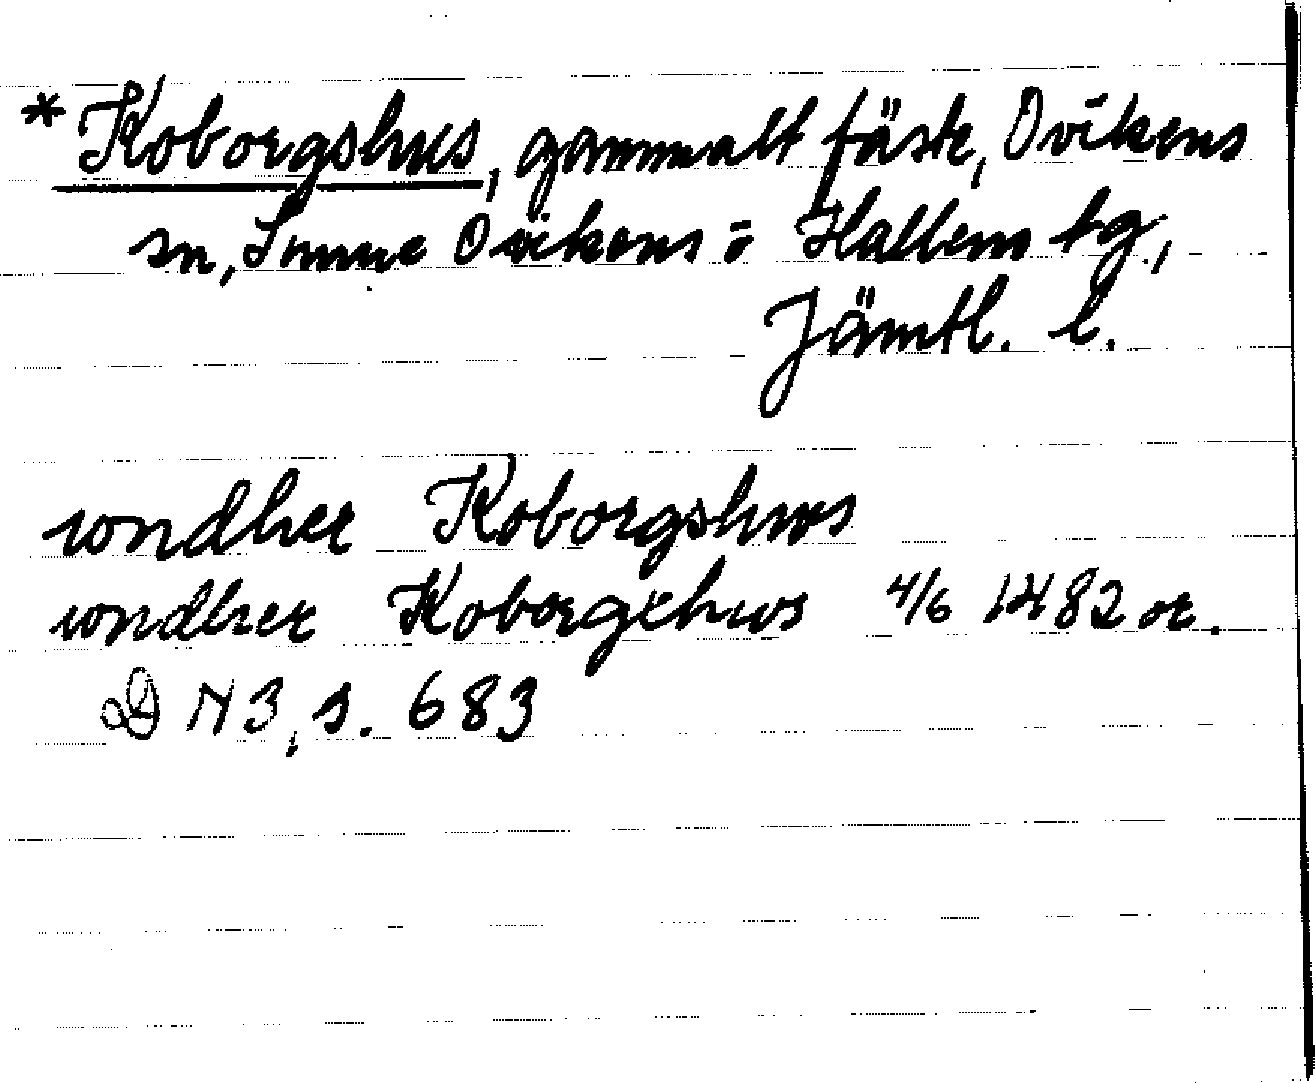 * Koborgshus, gammalt fäste, Ovikens
sn, Sunne Ovikens o Hallens tg,
Jämtl. l.
wndher Koborgshws
wndher Koborgxhws 4/6 1482 or.
DN 3, s. 683